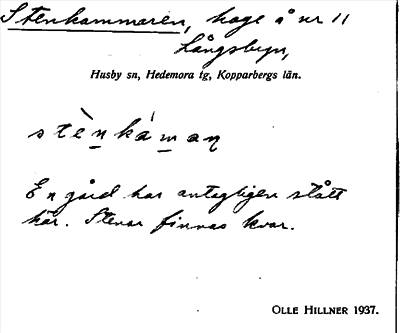 Stenkammaren, hage å nr 11
Långsbyn,
Husby sn, Hedemora tg, Kopparbergs län.
stènkáman
En gård har antagligen stått
här. Stenar finnas kvar.
OLLE HILLNER 1937.